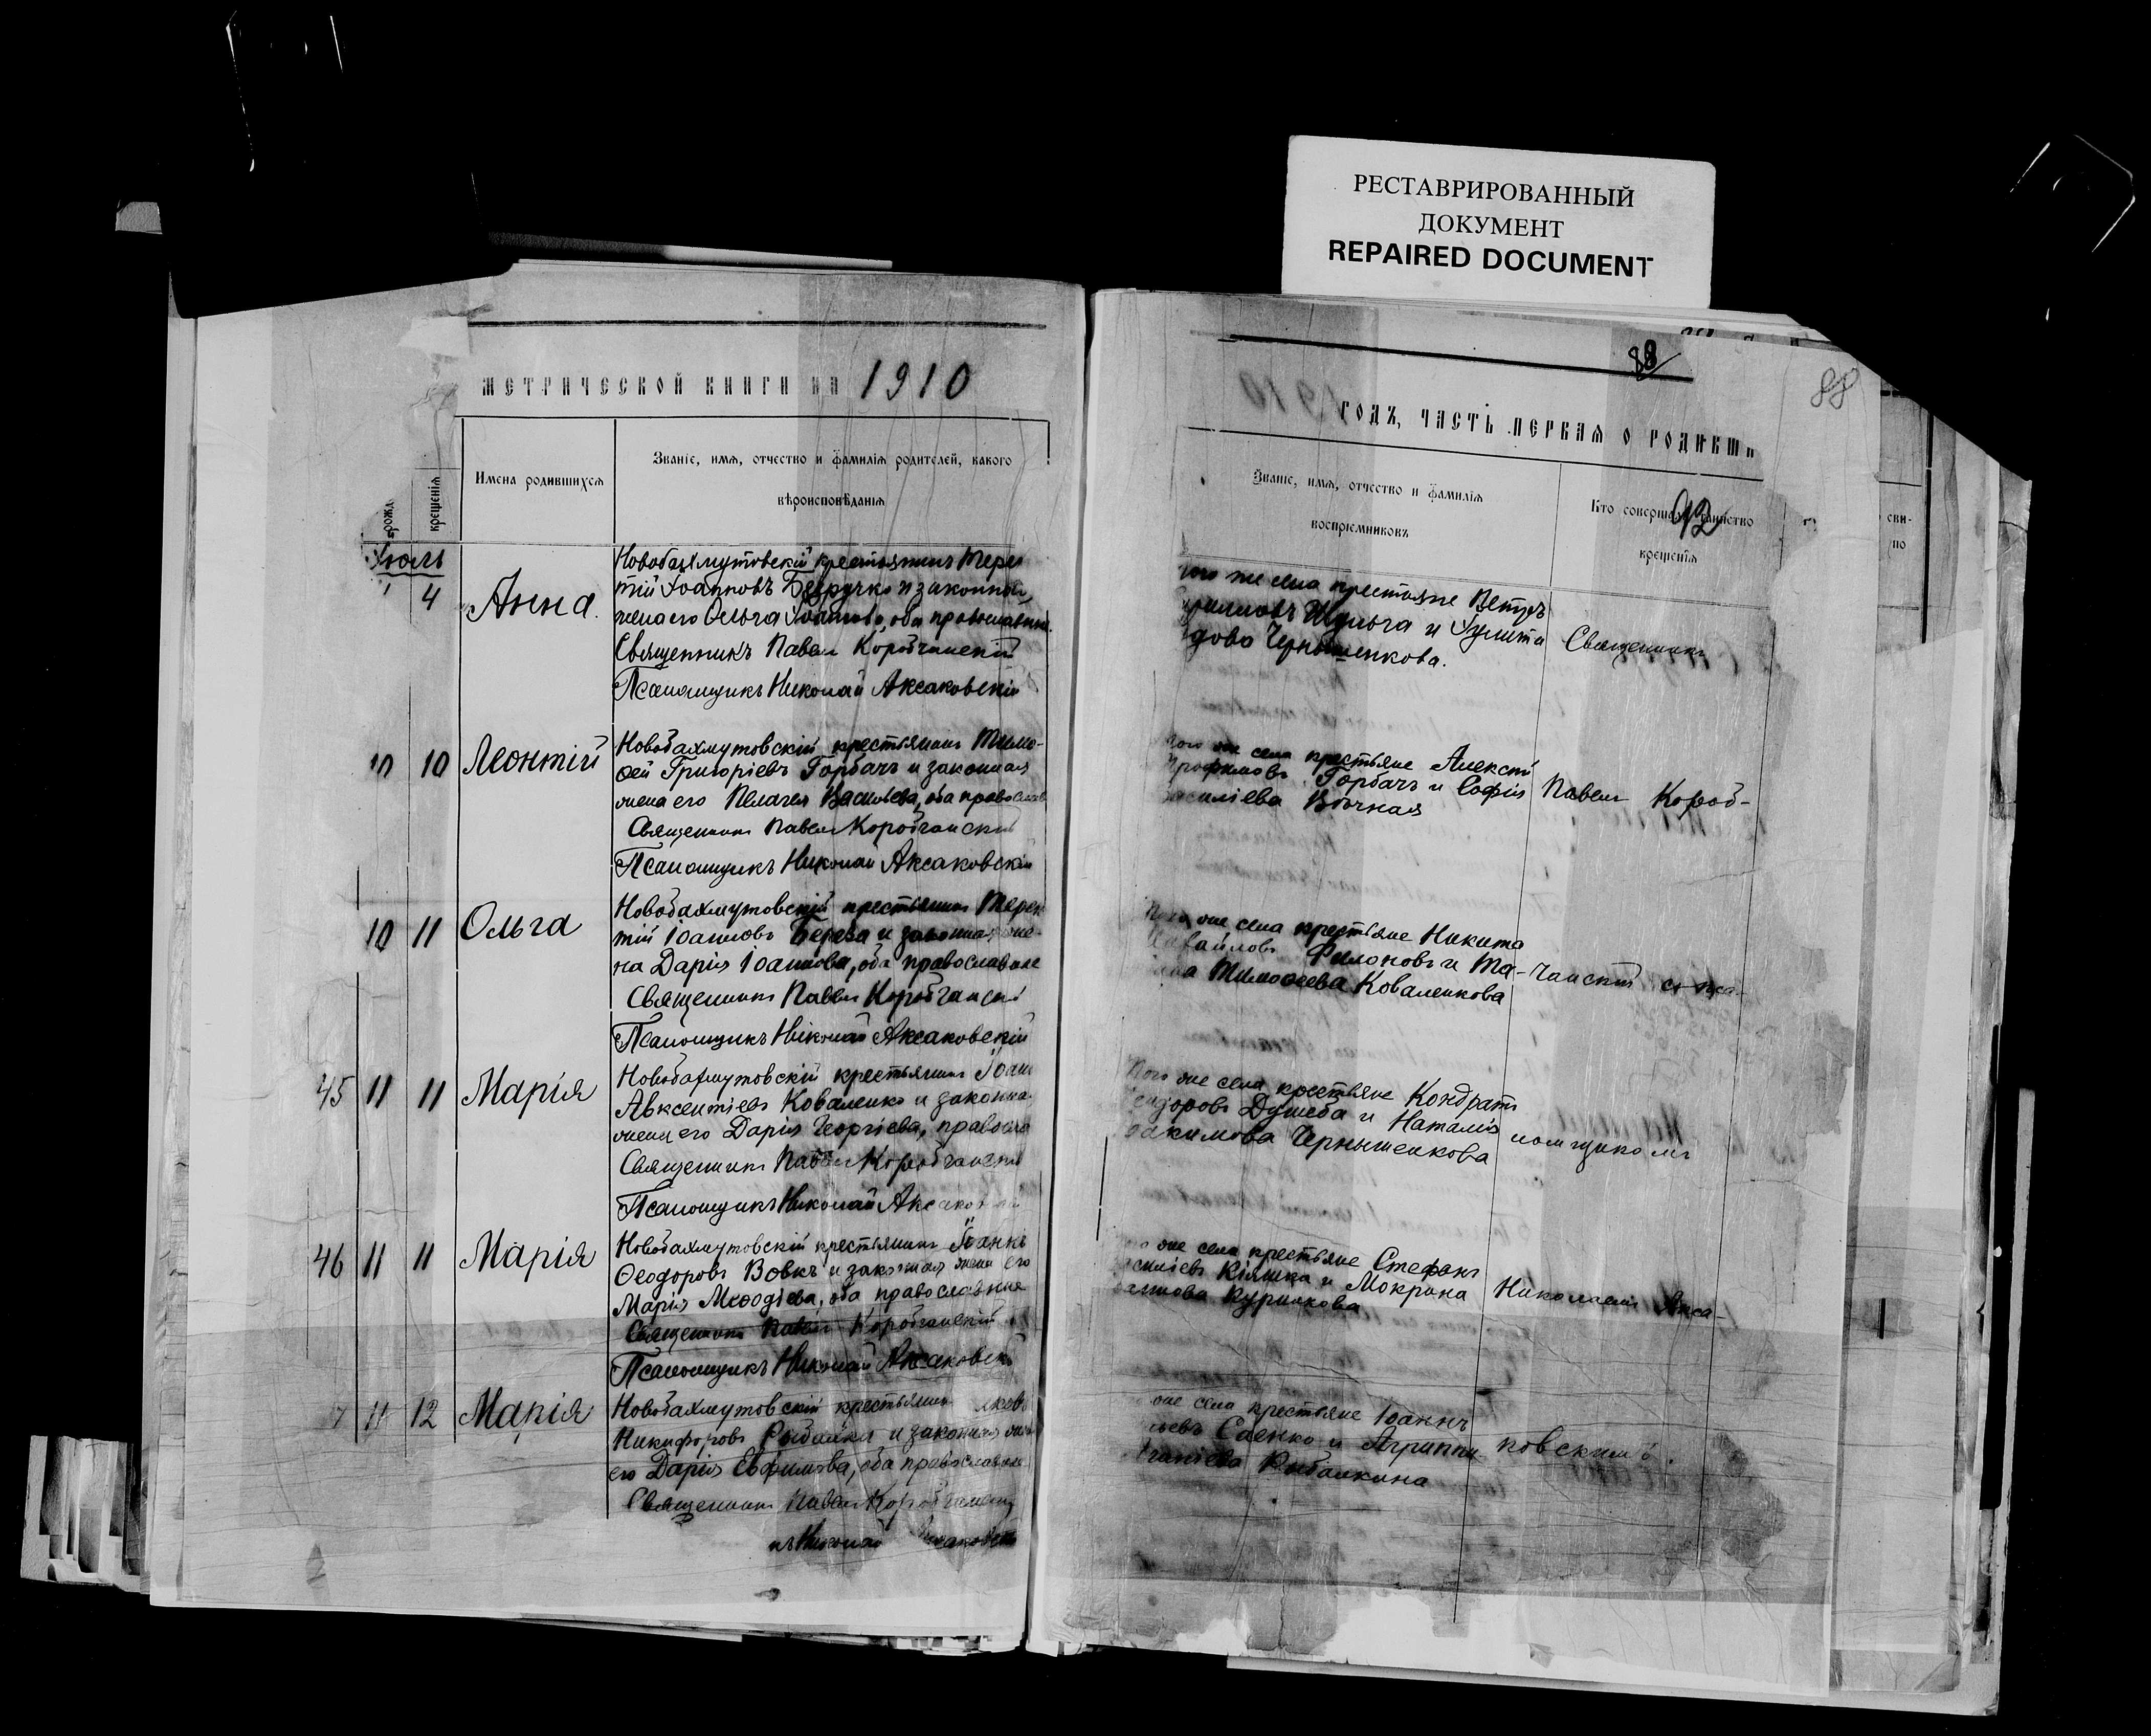 РЕСТАВРИРОВАННЫЙ
ДОКУМЕНТ
REPAIRED DOCUMENT
88
88
метрической книги на 1910
Имена родившихся
Званіе, имя, отчество и фамилія родителей, какого
вѣроисповѣданія
крещенія
Іюль
4
Анна.
Новобахмутовскій крестьянинъ Терен
тій Іоанновъ и законная
жена его Ольга Іоаннова, оба православные.
Священникъ Павелъ Коробчанскій
Псаломщикъ Николай Аксаковскій
10 10 Леонтій
Новобахмутовскій крестьянинъ Тимо-
ѳей Григоріевъ Горбачъ и законная
жена его Пелагея Васильева, оба православ
Священникъ Павелъ Коробчанскій
Псаломщикъ Николай Аксаковскій
10 11 Ольга
Новобахмутовскій крестьянинъ Терен
тій Іоанновъ Береза и законная же-
на Дарія Іоаннова, оба православные
Священникъ Павелъ Коробчанскій
Псаломщикъ Николай Аксаковскій
45 11 11 Марія
Новобахмутовскій крестьянинъ Іоан
Авксентіевъ Коваленко и законная
жена его Дарія Георгіева, правосла
Священникъ Павелъ Коробчанскій
Псаломщикъ Николай Аксаковскій
46 11 11 Марія
Новобахмутовскій крестьянинъ Іоаннъ
Ѳеодоровъ Вовкъ и законная жена его
Марія Меѳодіева, оба православные
Священникъ Павелъ Коробчанскій
Псаломщикъ Николай Аксаковскій
7 11 12 Марія
Новобахмутовскій крестьянинъ Іаковъ
Никифоровъ Рыбалка и законная жена
его Дарія Евфимова, оба православные
Священникъ Павелъ Коробчанскій
къ Николай Аксаковскій
1910 годъ, часть первая о родивши
Званіе, имя, отчество и фамилія
воспріемниковъ
Кто совершалъ таинство
крещенія
92
того же села крестьяне Петръ
Шульга и Улита
Чернышенкова.
Священникъ
того же села крестьяне Алексѣй
Трофимовъ Горбачъ и Софія
Василіева
Павелъ Короб-
Того же села крестьяне Никита
Михайловъ Филоновъ и Та-
Тимоѳеева Коваленкова
чанскій съ пса-
Того же села крестьяне Кондратъ
Ѳеодоровъ и Наталія
Іоакимова Чернышенкова
ломщикомъ
же села крестьяне Стефанъ
и Мокрина
Курилкова
Николаемъ Акса-
же села крестьяне Іоаннъ
ьевъ Саенко и Агриппи
Рыбалкина
ковскимъ.